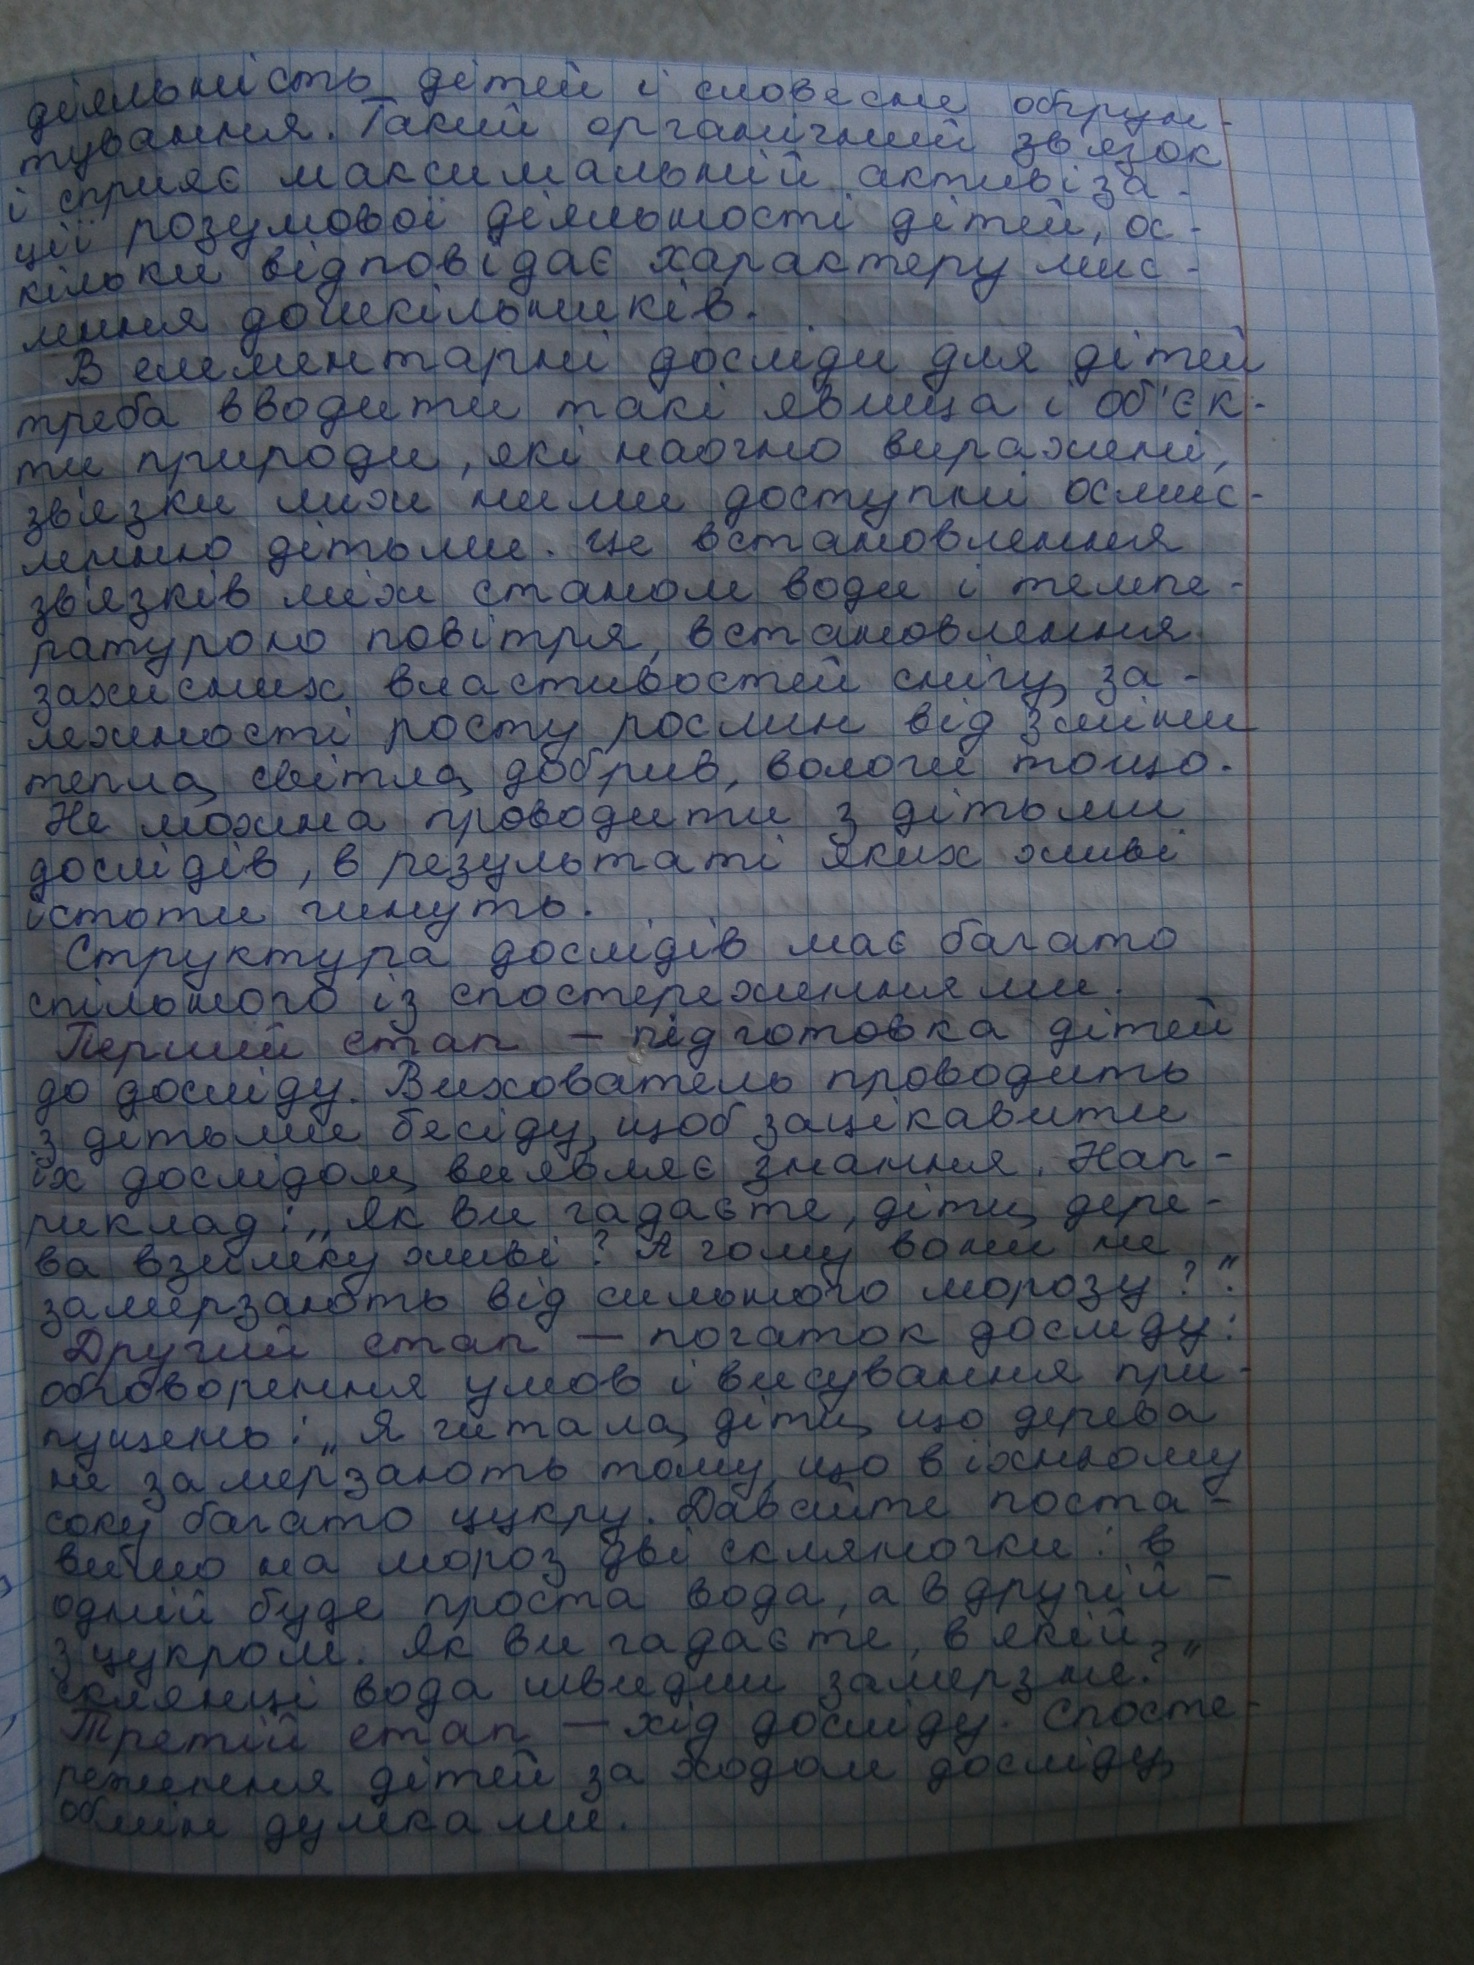 діяльність дітей і словесне обгрун-
тування. Такий органічний зв'язок
і сприяє максимальній активіза-
ції розумової діяльності дітей, ос-
кільки відповідає характеру мис-
лення дошкільників.
В елементарні досліди для дітей
треба вводити такі явища і об'єк-
ти природи, які наочно виражені,
зв'язки між ними доступні осмис-
ленню дітьми. Це встановлення
зв'язків між станом води і темпе-
ратурою повітря, встановлення
захисних властивостей снігу, за-
лежності росту рослин від зміни
тепла, світла, добрив, вологи тощо.
Не можна проводити з дітьми
дослідів, в результаті яких живі
істоти гинуть.
Структура дослідів має багато
спільного із спостереженнями.
Перший етап – підготовка дітей
до досліду. Вихователь проводить
з дітьми бесіду, щоб зацікавити
їх дослідом, виявляє знання. Нап-
риклад: „Як ви гадаєте, діти, дере-
ва взимку живі? А чому вони не
замерзають від сильного морозу?“.
Другий етап – початок досліду:
обговорення умов і висування при-
пущень: „Я читала, діти, що дерева
не замерзають тому, що в їхньому
соку багато цукру. Давайте поста-
вимо на мороз дві скляночки: в
одній буде проста вода, а в другій –
з цукром. Як ви гадаєте, в якій
склянці вода швидше замерзне?“
Третій етап – хід досліду. Спосте-
реження дітей за ходом досліду,
обмін думками.